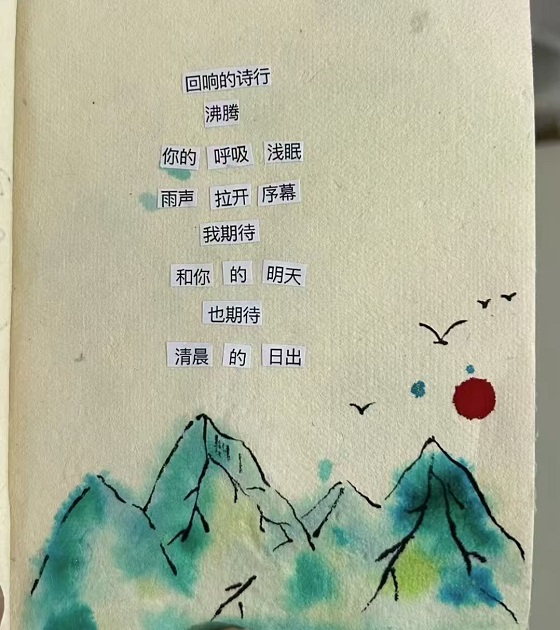 回响的诗行
沸腾
你的 呼吸 浅眠
雨声 拉开 序幕
我期待
和你 的 明天
也期待
清晨 的 日出